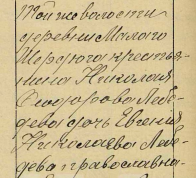 той же волости
деревни Малого
крестья-
нина Николая
Феодорова Лебе-
дева дочь Евгения
Николаева Лебе-
дева православна-